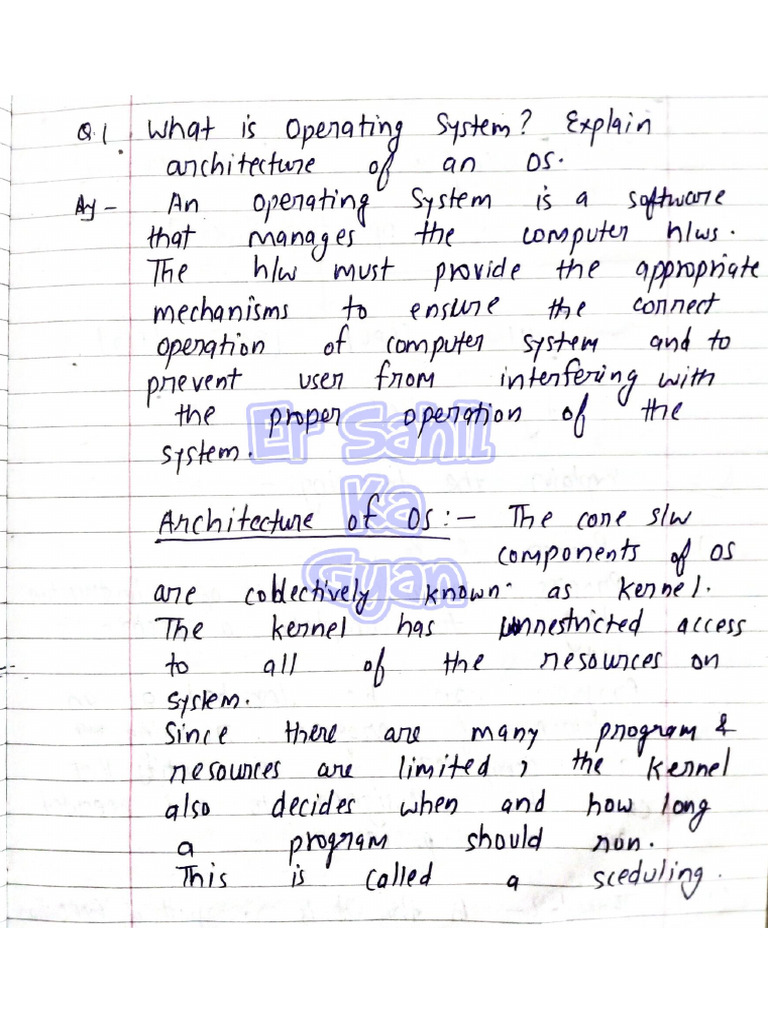 Q.1 What is Operating System? Explain
architecture of an OS.
Ans – An operating System is a software
that manages the computer h/ws.
The h/w must provide the appropriate
mechanisms to ensure the correct
operation of computer system and to
prevent user from interfering with
the proper operation of the
system.
Er Sahil
Ka
Gyan
Architecture of OS:– The core s/w
components of OS
are collectively known as kernel.
The kernel has unrestricted access
to all of the resources on
system.
Since there are many program &
resources are limited, the kernel
also decides when and how long
a program should run.
This is called a sceduling.